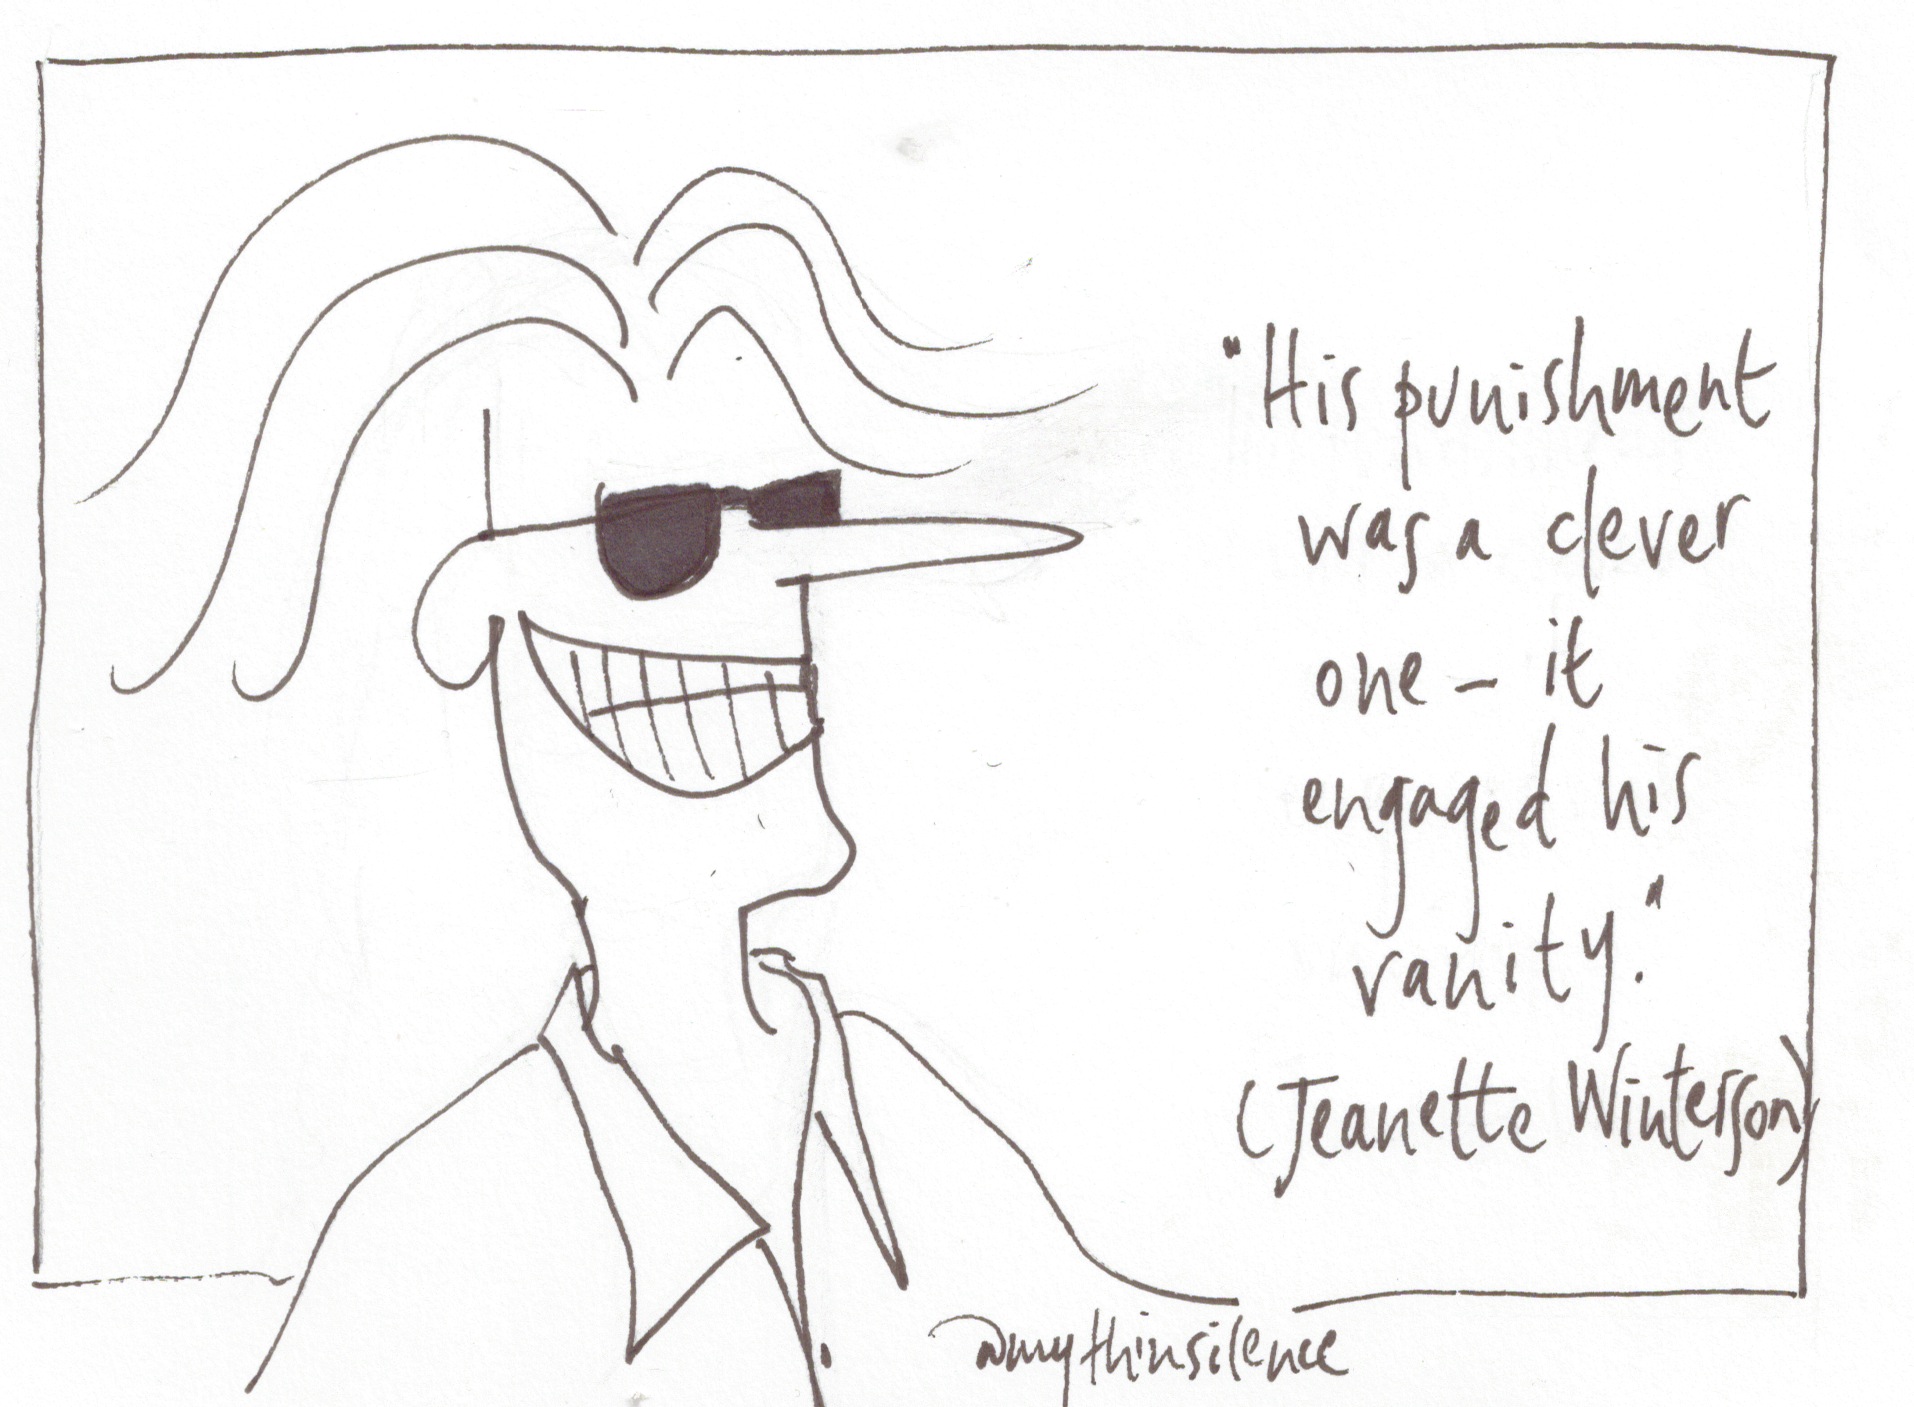 "His punishment
was a clever
one – it
engaged his
vanity."
(Jeanette Winterson)
@mythinsilence